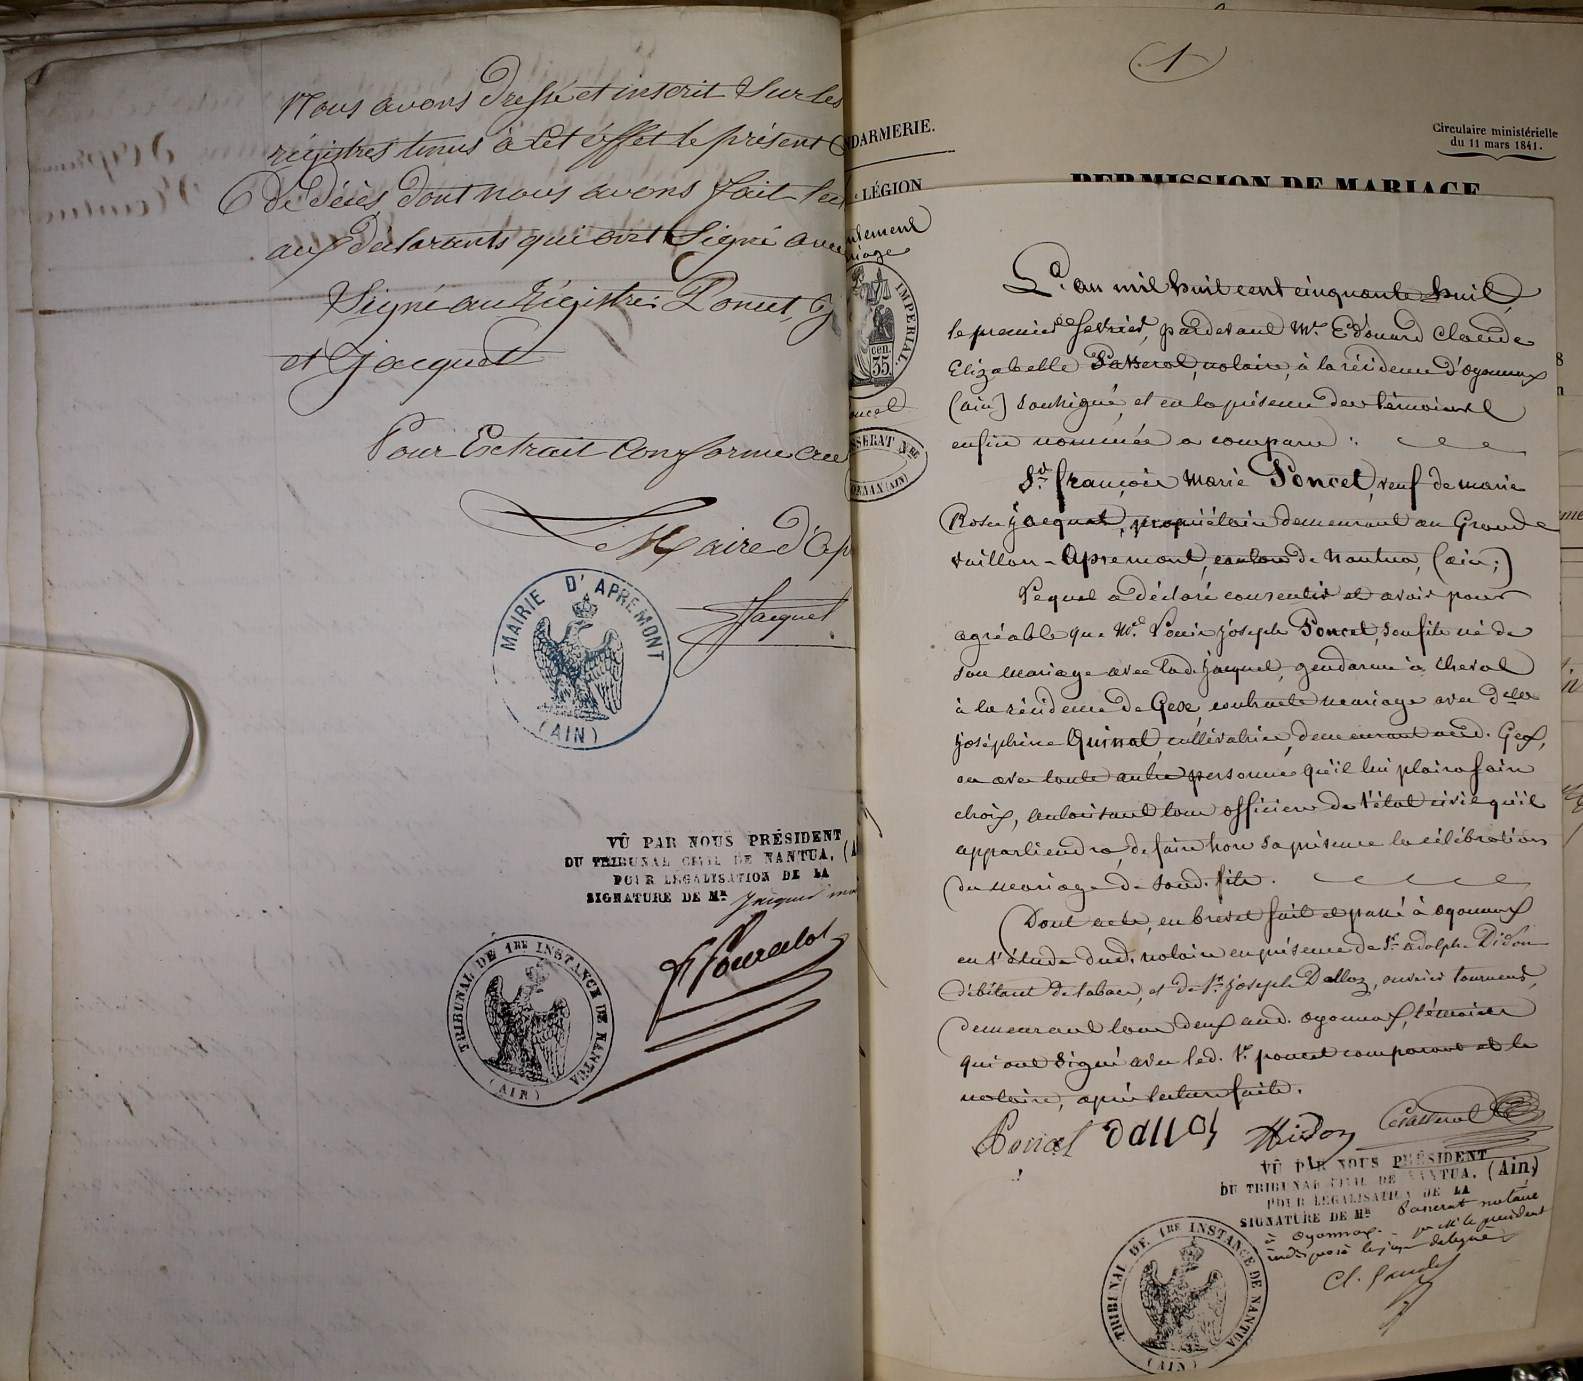 Nous avons dressé et inscrit Sur les
régistres tenus à cet éffet le présent
De décès dont nous avons fait
aux déclarants qui ont Signé avec
Signé au Régistre: Poncet,
et Jacquet
Pour Extrait conforme
Le Maire d'Ap
Jacquet
MAIRIE D'APREMONT
(AIN)
VÛ PAR NOUS PRÉSIDENT
DU TRIBUNAL CIVIL DE NANTUA, (A
POUR LÉGALISATION DE LA
SIGNATURE DE Mr Jacquet
TRIBUNAL DE 1RE INSTANCE DE NANTUA
(AIN)
1
NDARMERIE.
LÉGION
IMPERIAL.
cen.
35
SSERAT NRE
(AIN)
Circulaire ministérielle
du 11 mars 1841.
PERMISSION DE MARIAGE
L'an mil huit cent cinquante huit,
le premier fevrier, pardevant Me Edouard Claude
Elizabelle Passerat, notaire, à la résidence d'oyonnax
(ain) soussigné, et en la présence des témoins
enfin nommés a comparu:
Sr françois Marie Poncet, veuf de marie
Rose jacquet, propriétaire demeurant au Grand
vaillon-Apremont, canton de Nantua, (ain;)
Lequel a déclaré consentir et avoir pour
agréable que Mr Louis joseph Poncet, son fils né de
son mariage avec lad. jacquet, gendarme à cheval
à la résidence de Gex, contracte mariage avec Delle
joséphine Quinat, cultivatrice, demeurant aud. Gex,
ou avec toute autre personne qu'il lui plaira faire
choix, autorisant tous officiers de l'état civil qu'il
appartiendra, de faire hors sa présence la célébration
du mariage de sond. fils.
Dont acte, en brevet fait et passé à oyonnax
en l'étude dud. notaire en présence de Sr adolphe Didon
débitant de tabacs, et de Sr joseph Dalloz, ouvrier tourneur,
demeurant tous deux aud. oyonnax, témoins
qui ont signé avec led. Sr poncet comparant et le
notaire, après lecture faite.
Poncet Dalloz Didon
VÛ PAR NOUS PRÉSIDENT
DU TRIBUNAL CIVIL DE NANTUA, (Ain,)
POUR LÉGALISATION DE LA
SIGNATURE DE Mr Passerat notaire
à oyonnax. pr Mr le président
indisposé le juge délégué
TRIBUNAL DE 1RE INSTANCE DE NANTUA
(AIN)